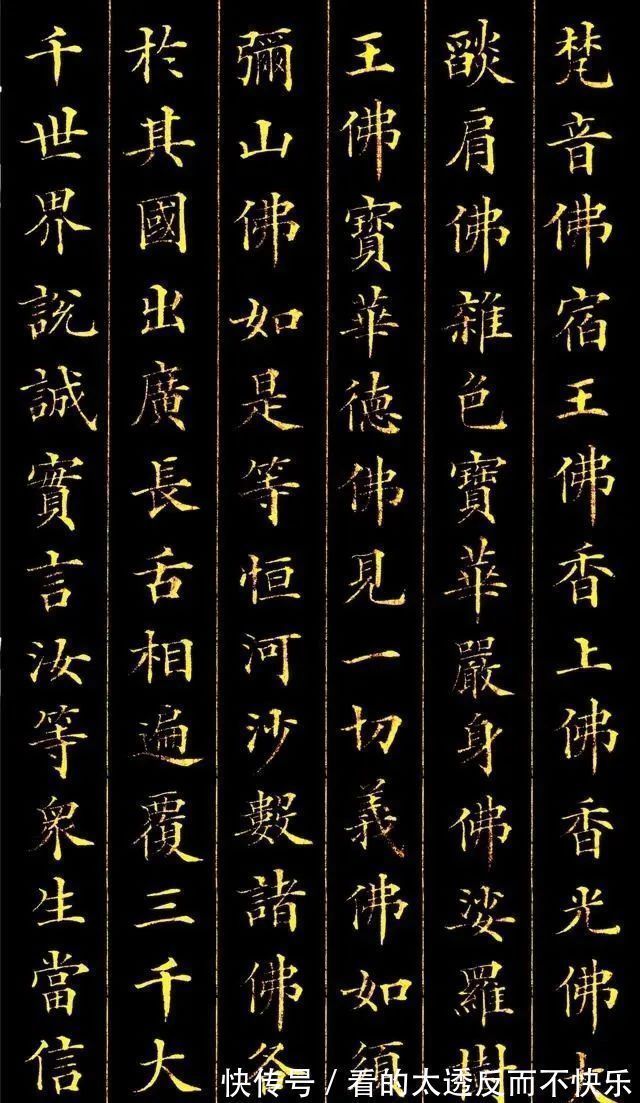 梵音佛宿王佛香上佛香光佛大
燄肩佛雜色寶華嚴身佛娑羅樹
王佛寶華德佛見一切義佛如須
彌山佛如是等恒河沙數諸佛各
於其國出廣長舌相遍覆三千大
千世界說誠實言汝等眾生當信
快传号/看的太透反而不快乐